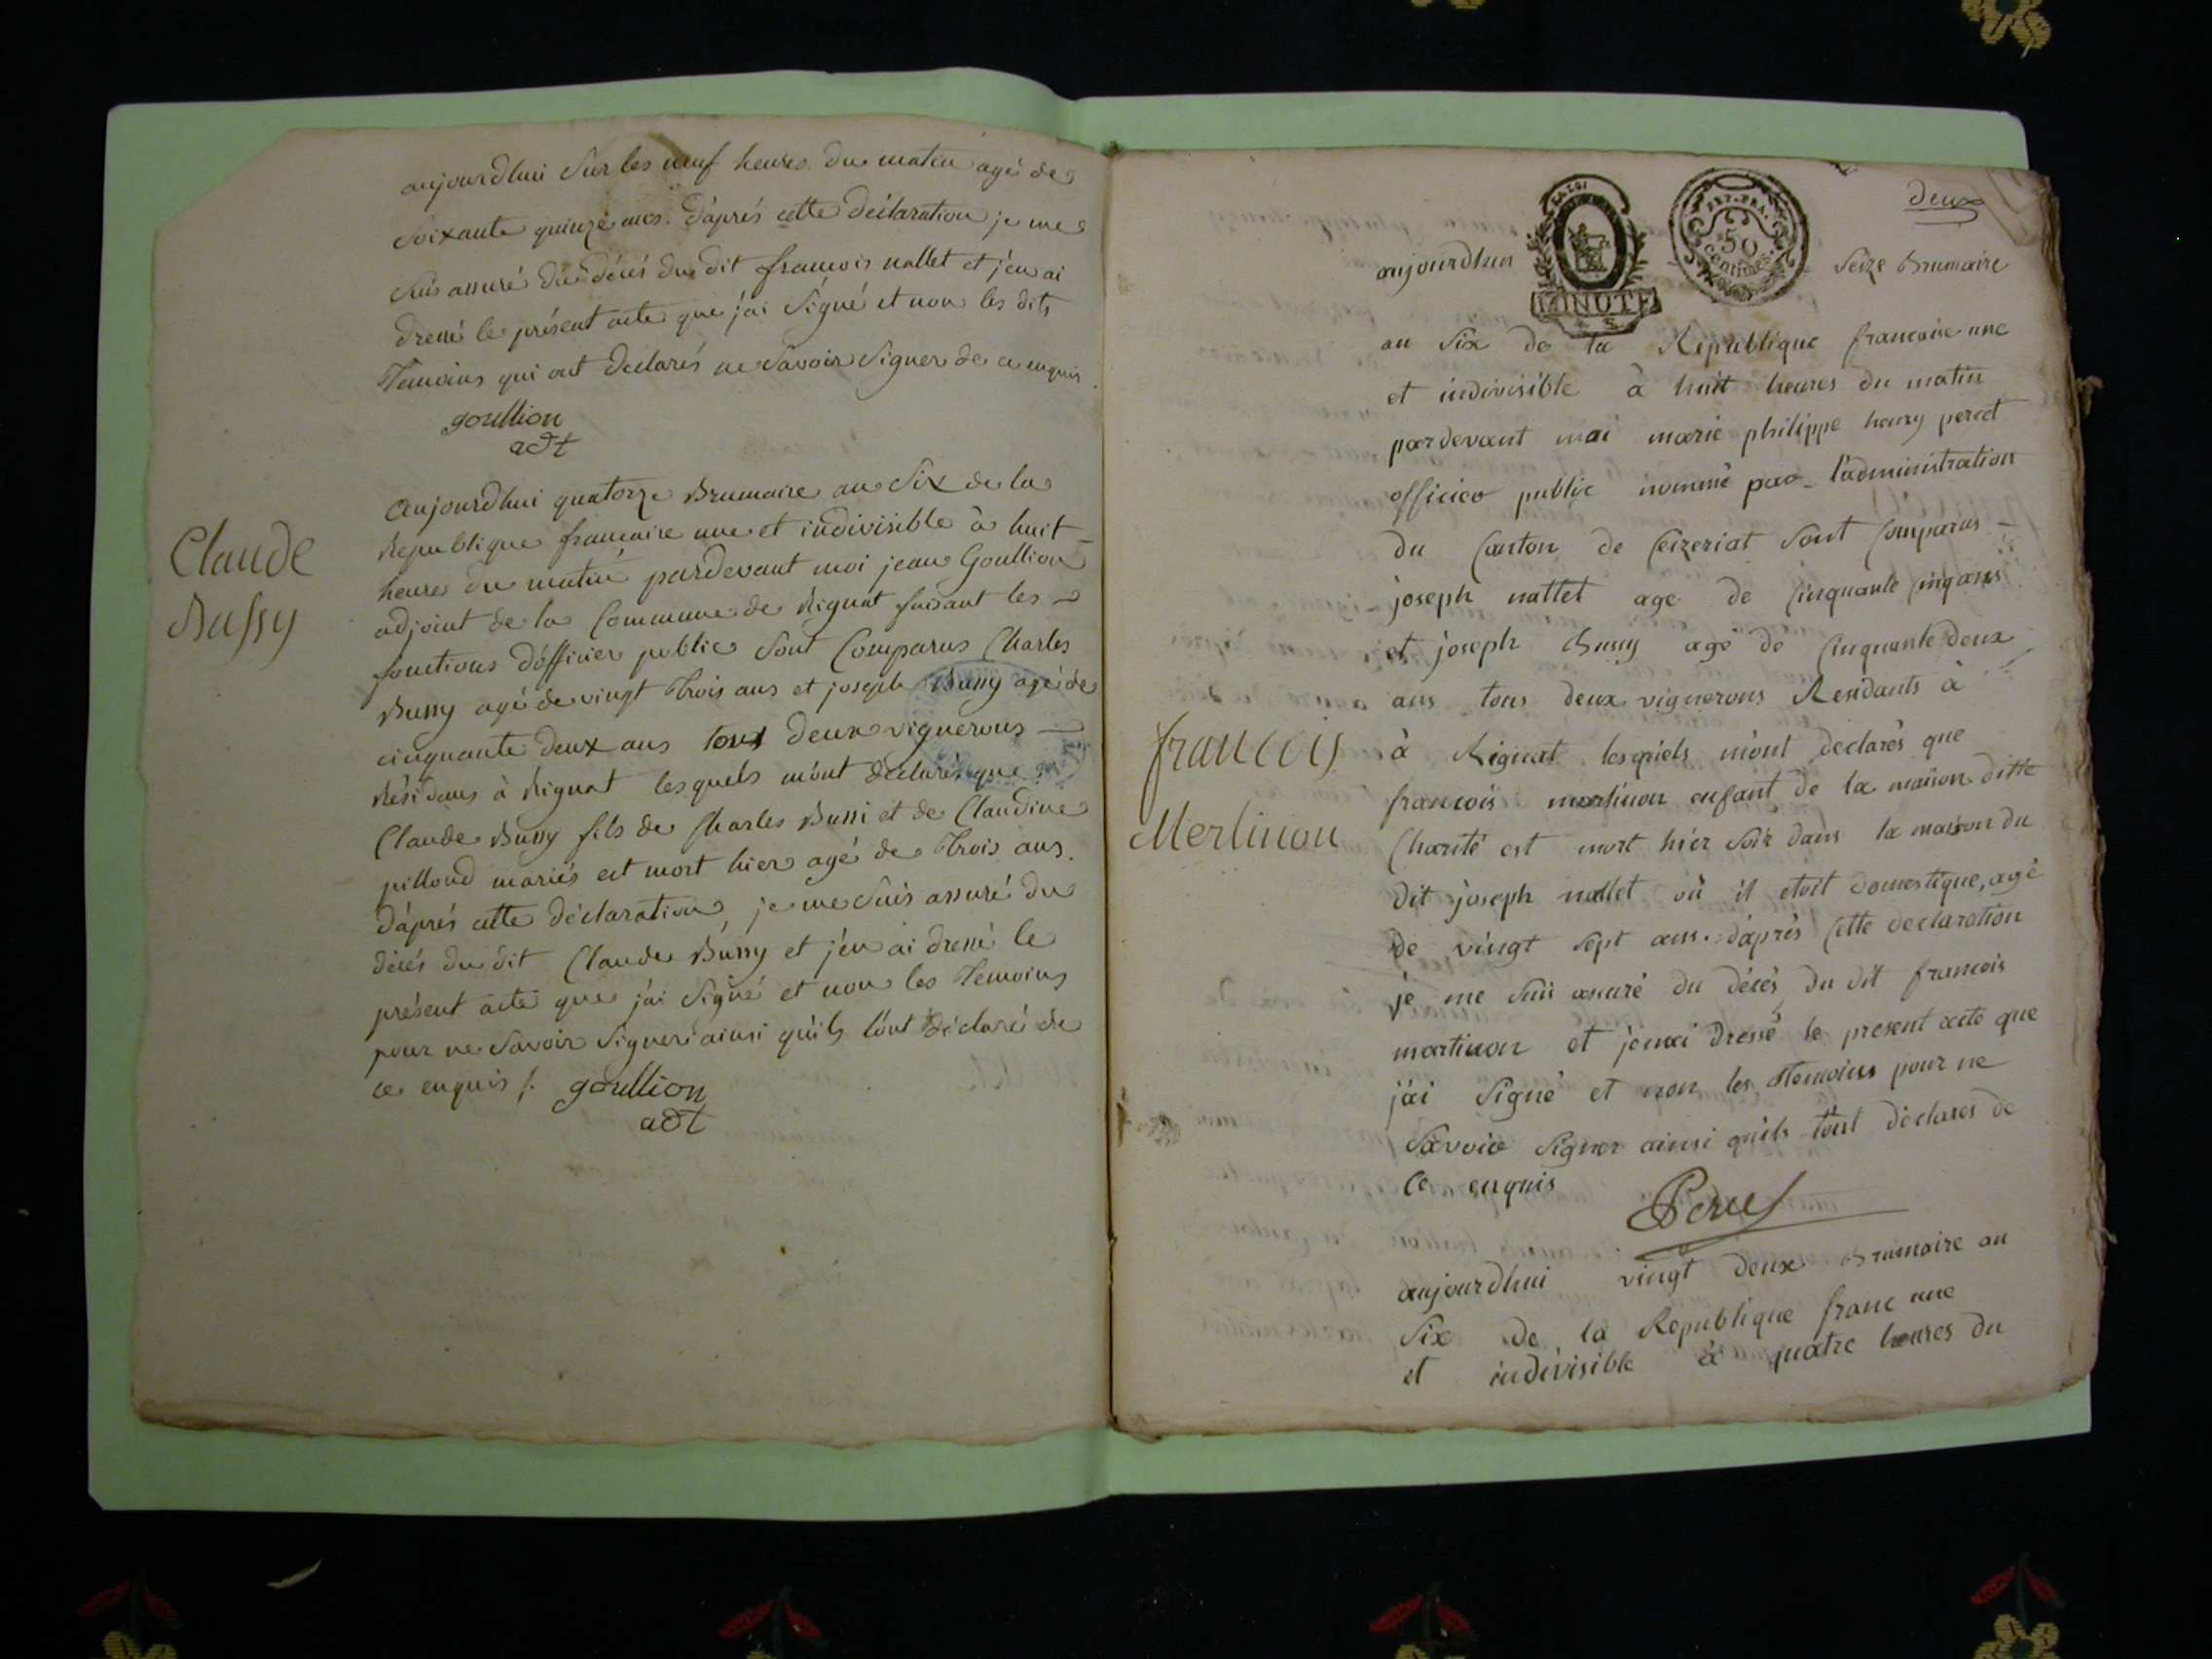 aujourdhui Sur les neuf heures du matin agé de
Soixante quinze ans. d'aprés cette déclaration je me
Suis assuré du décés du dit francois nallet et j'en ai
dressé le présent acte que j'ai Signé et non les dits
Temoins qui ont declarés ne Savoir Signer de ce enquis.
goullion
adt
Claude
Bussy
aujourdhui quatorze Brumaire an Six de la
Republique francaise une et indivisible à huit
heure du matin pardevant moi jean Goullion
adjoint de la Commune de Rignat faisant les
fonctions d'officier public Sont Comparus Charles
Bussy agé de vingt Trois ans et joseph Bussy agé de
cinquante deux ans tous deux vignerons
Résidans à Rignat lesquels m'ont déclarés que
Claude Bussy fils de Charles Bussi et de Claudine
pilloud mariés est mort hier agé de Trois ans.
d'aprés cette déclaration je me Suis assuré du
décés du dit Claude Bussy et j'en ai dressé le
présent acte que j'ai Signé et non les Temoins
pour ne Savoir Signer ainsi qu'ils l'ont déclaré de
ce enquis /. goullion
adt
deux
LA LOI
MINUTE
REP. FRA.
50
centimes
aujourdhui Seize Brumaire
an Six de la Republique francaise une
et indivisible à huit heures du matin
pardevant moi marie philippe henry peret
officier public nommé par l'administration
du Canton de Ceizeriat Sont Comparus
joseph nallet age de Cinquante Cinq ans
et joseph Bussy agé de Cinquante deux
ans tous deux vignerons Residants à
à Rignat lesquels m'ont declarés que
francois
Merlinon
francois martinon enfant de la maison ditte
Charité est mort hier Soir dans la maison du
dit joseph nallet où il etoit domestique, agé
de vingt Sept ans. d'aprés Cette declaration
je me Suis assuré du décés du dit francois
martinon et j'en ai dressé le present acte que
j'ai Signé et non les Temoins pour ne
Savoir Signer ainsi qu'ils l'ont déclarés de
Ce enquis
Peret
aujourdhui vingt deux Brumaire an
Six de la Republique franc une
et indivisible à quatre heures du